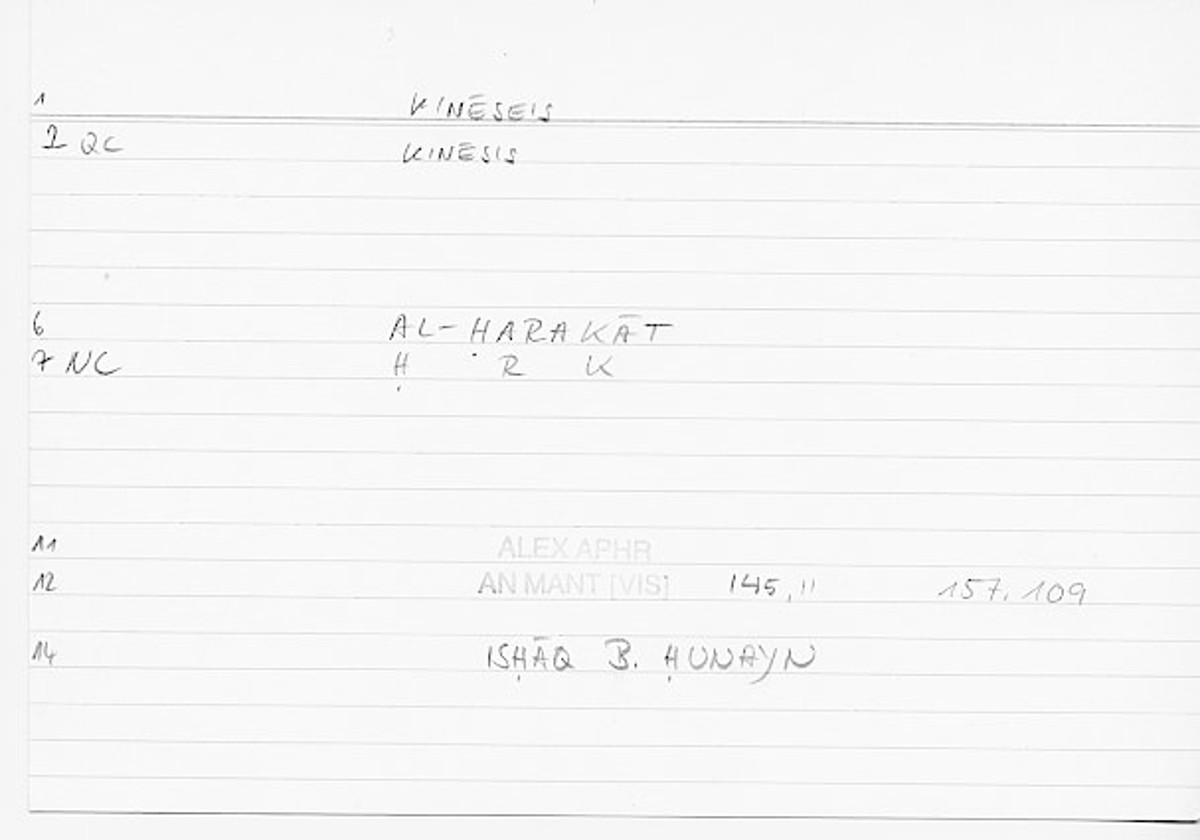 1 KINĒSEIS
2 QC KINĒSIS
6 AL-ḤARAKĀT
7 NC Ḥ R K
11 ALEX APHR
12 AN MANT [VIS] 145,11 157.109
14 ISḤĀQ B. ḤUNAYN